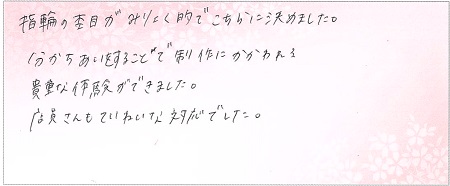 指輪の杢目がみりょく的でこちらに決めました。
分かちあいをすることで制作にかかわれる
貴重な体験ができました。
店員さんもていねいな対応でした。